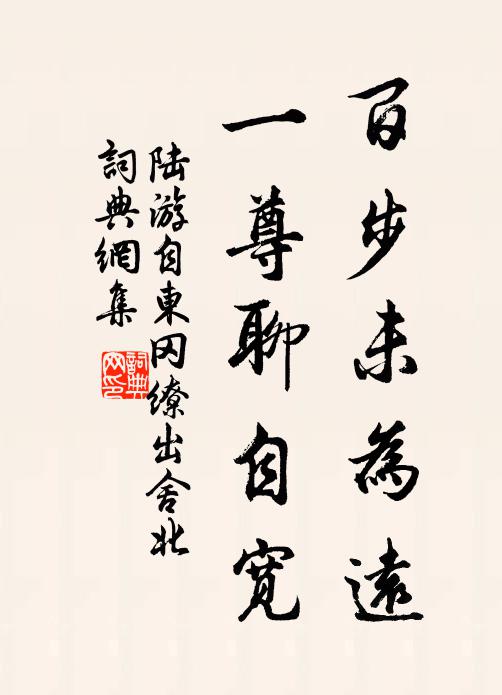 百步未為遠
一尊聊自寬
陆游自東冈繚出舍北
詞典網集
詞典网印